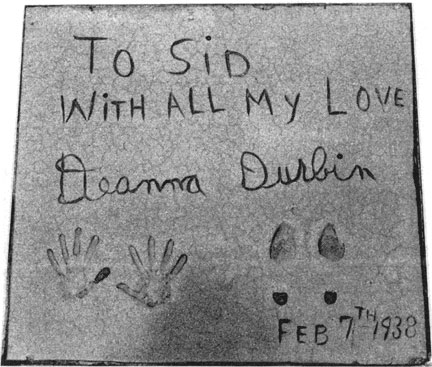 To SiD
WiTH ALL My LovE
Deanna Durbin
FEB 7TH 1938